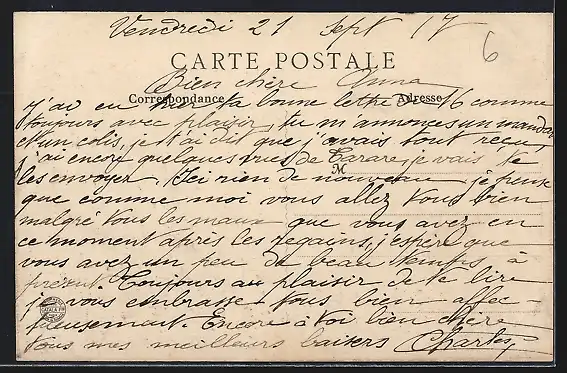 Vendredi 21 Sept 17
6
CARTE POSTALE
Bien chère Anna
Correspondance Adresse
J'ai eu hier ta bonne lettre de 16 comme
toujours avec plaisir, tu m'annonces un mandat
et un colis, je t'ai dit que j'avais tout reçu,
j'ai encore quelques vues de Tarare, je vais te
M
les envoyer. Ici rien de nouveau, je pense
que comme moi vous allez tous bien
malgré tous les maux que vous avez en
ce moment après les regains, j'espère que
vous avez un peu de beau temps à
présent. Toujours au plaisir de te lire
je vous embrasse tous bien affec-
tueusement. Encore à toi bien chère
tous mes meilleurs baisers Charles